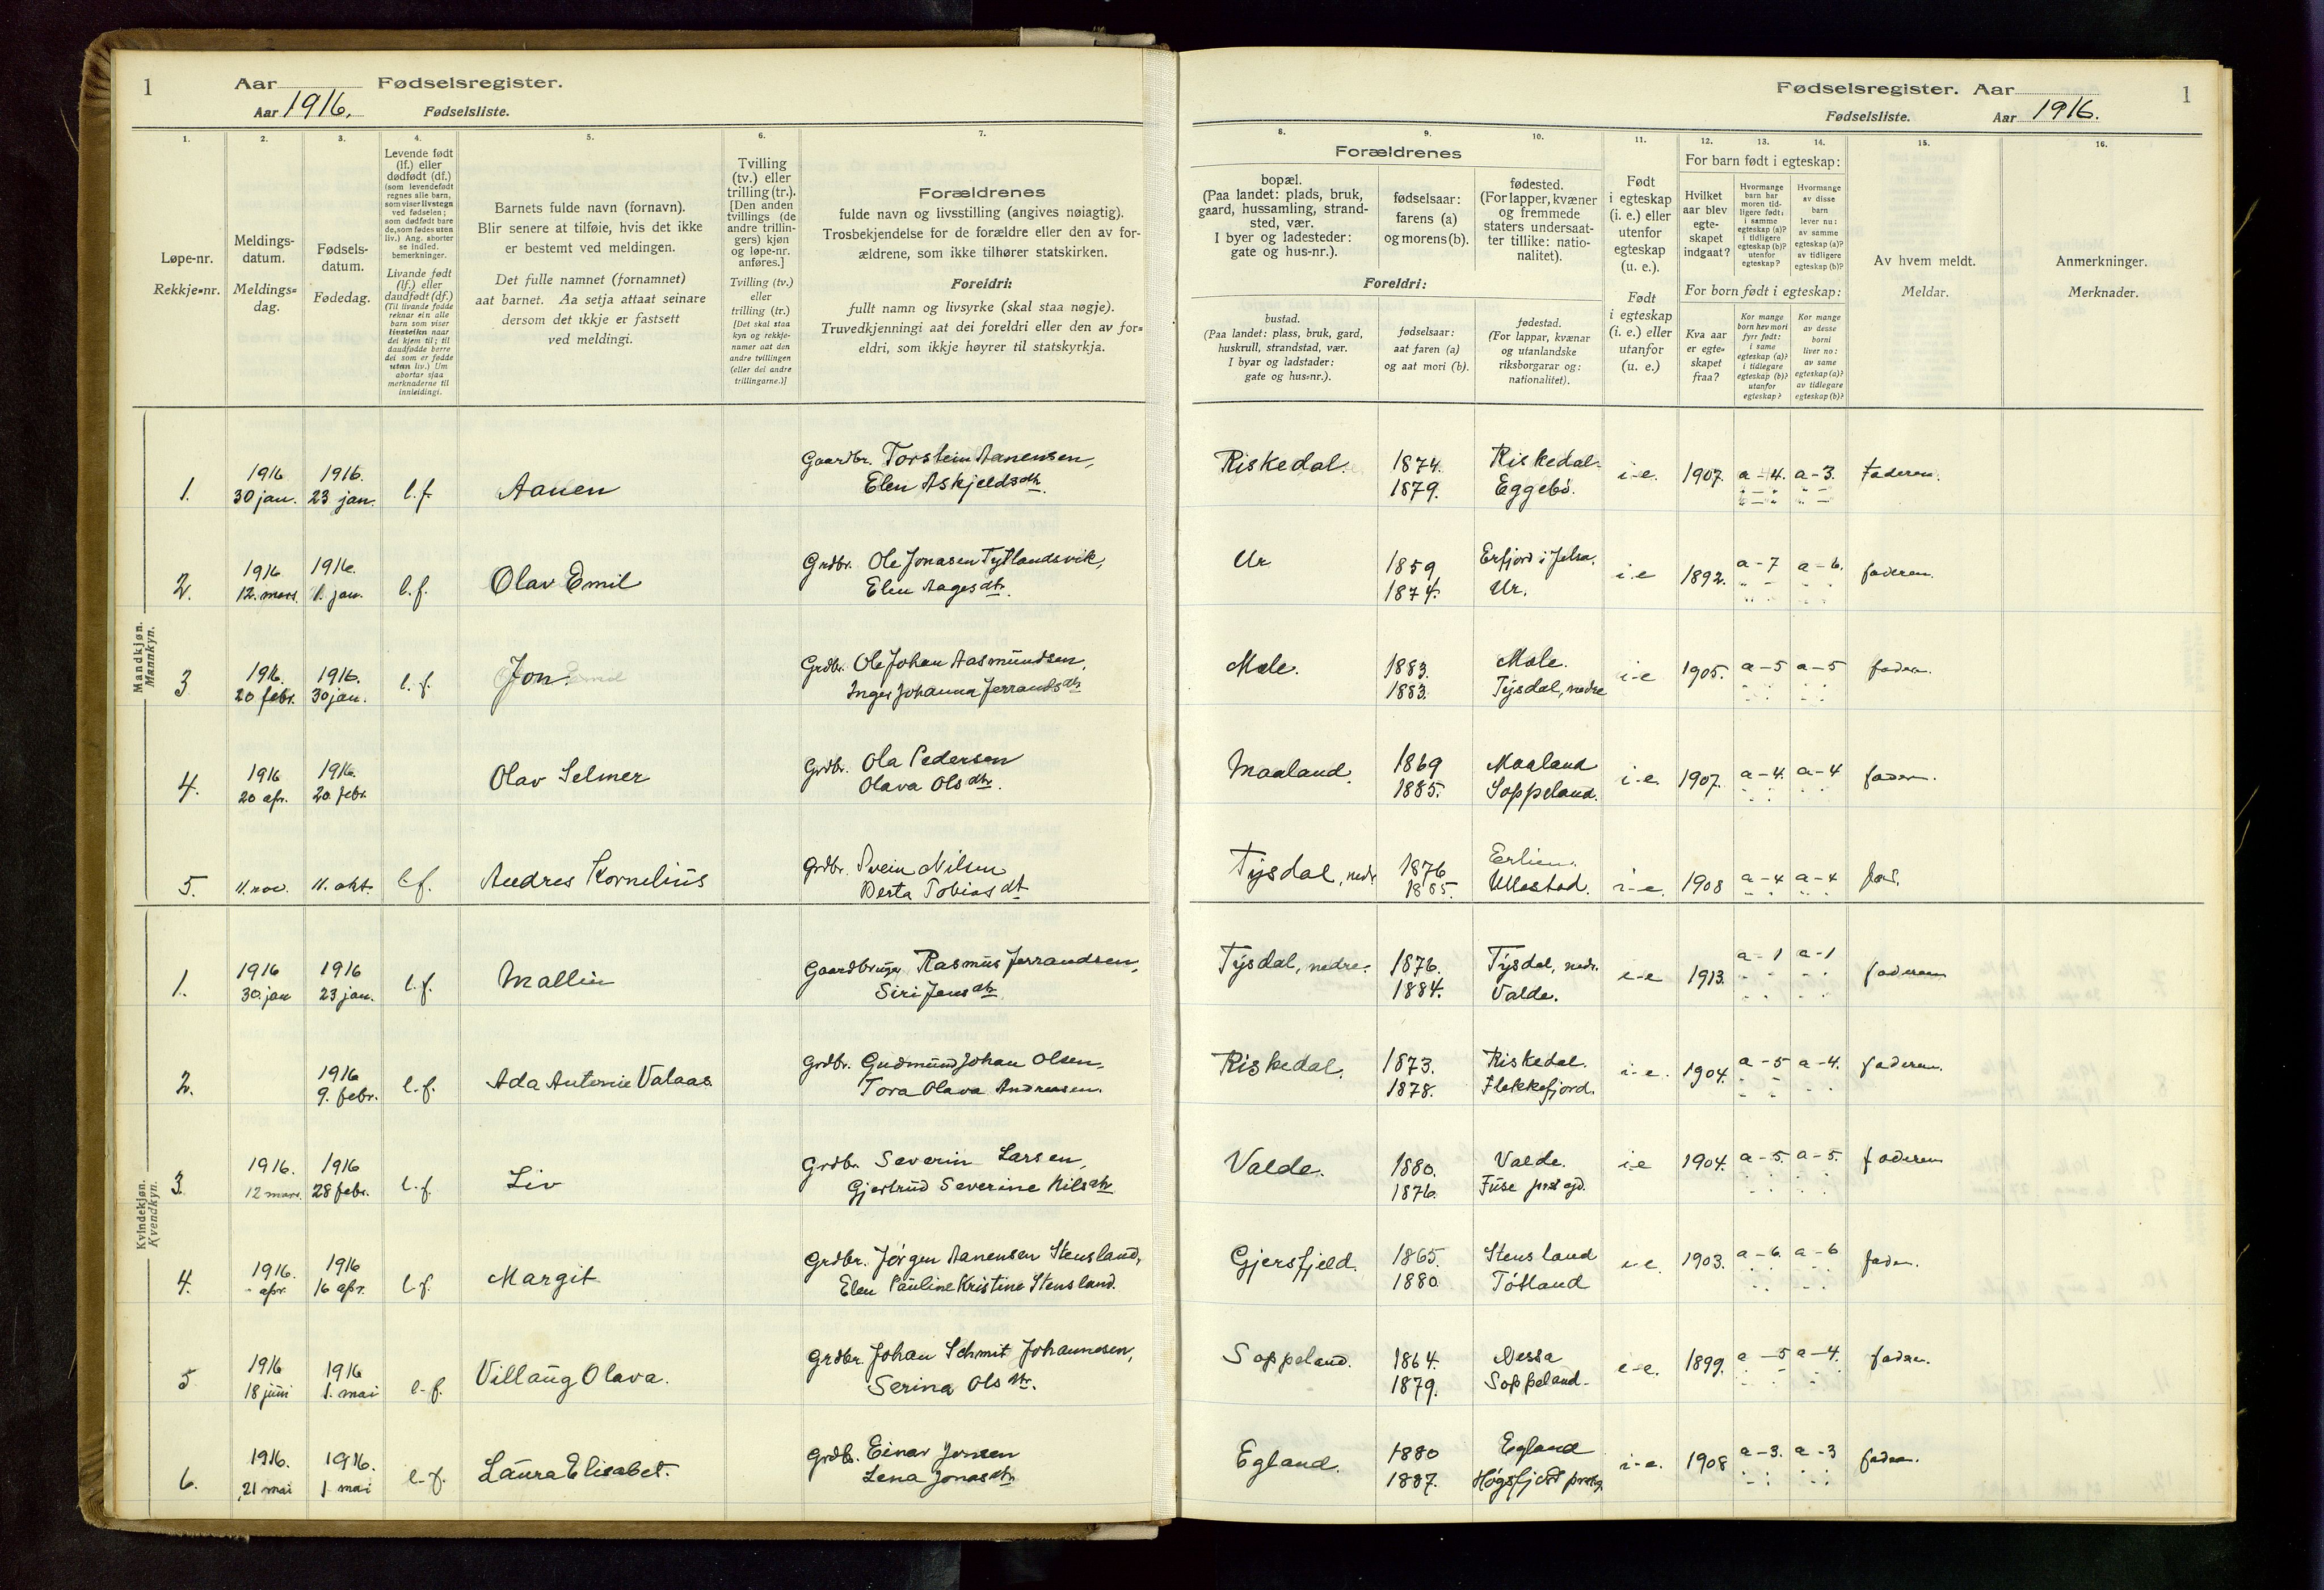 1
Aar Fødselsregister.
Aar 1916. Fødselsliste.
1.
2.
3.
4.
5.
6.
7.
Løpe-nr.
Rekkje-nr.
Meldings-
datum.
Meldings-
dag.
Fødsels-
datum.
Fødedag.
Levende født
(lf.) eller
dødfødt (df.)
(som levendefødt
regnes alle barn,
som viser livstegn
ved fødselen;
som dødfødt bare
de, som fødes uten
liv.) Ang. aborter
se indled.
bemerkninger.
Livande født
(lf.) eller
daudfødt (df.)
(Til livande fødde
reknar ein alle
barn som viser
livsteikn naar
dei kjem til; til
daudfødde berre
dei som er fødde
utan liv.) Um
abortar sjaa
merknaderne til
innleidingi.
Barnets fulde navn (fornavn).
Blir senere at tilføie, hvis det ikke
er bestemt ved meldingen.
Det fulle namnet (fornamnet)
aat barnet. Aa setja attaat seinare
dersom det ikkje er fastsett
ved meldingi.
Tvilling
(tv.) eller
trilling (tr.).
[Den anden
tvillings (de
andre trillin-
gers) kjøn
og løpe-nr.
anføres.]
Tvilling (tv.)
eller
trilling (tr.)
[Det skal staa
kyn og rekkje-
numer aat den
andre tvillingen
(eller dei andre
trillingarne.)]
Forældrenes
fulde navn og livsstilling (angives nøiagtig).
Trosbekjendelse for de forældre eller den av for-
ældrene, som ikke tilhører statskirken.
Foreldri:
fullt namn og livsyrke (skal staa nøgje).
Truvedkjenningi aat dei foreldri eller den av for-
eldri, som ikkje høyrer til statskyrkja.
Mandkjøn.
Mannkyn.
1. 1916 30 jan. 1916. 23 jan. l.f. Aanen Gaardbr. Torstein Aanensen,
Elen Askjeldsdtr.
2. 1916 12. mars. 1916. 1. jan. l.f. Olav Emil Grdbr. Ole Jonasen Tytlandsvik,
Elen Aagesdtr.
3 1916. 20 febr. 1916. 30 jan. l.f. Jon. Grdbr. Ole Johan Aasmundsen,
Inger Johanna Jerrandsdtr
4. 1916 20 apr. 1916. 20. febr. Olav Selmer Grdbr. Ola Pedersen
Olava Olsdtr.
5. 11. nov. 11. okt. l.f. Andres Kornelius Grdbr. Svein Nilsen
Berta Tobiasdt
Kvindekjøn.
Kvendkyn.
1. 1916 30. jan 1916 23 jan. l.f. Mallin Gaardbruger Rasmus Jerrandsen,
Siri Jensdtr
2. 1916 9. febr. l.f. Ada Antonie Valaas. Grdbr. Gudmund Johan Olsen,
Tora Olava Andreasen.
3. 1916. 12 mars. 1916 28 febr. l.f. Liv Grdbr. Severin Larsen,
Gjertrud Severine Nilsdtr
4. 1916. apr. 1916 16 apr. l.f. Margit Grdbr. Jørgen Aanensen Stensland,
Elen Pauline Kristine Stensland.
5 1916 18 juni 1916 1. mai l-f. Villaug Olava. Grdbr. Johan Schmit Johannesen,
Serina Olsdtr.
6. 1916. 21 mai 1916. 1 mai l-f. Laura Elisabet. Grdbr. Einar Jonsen
Lena Jonasdtr
Fødselsregister. Aar 1
Fødselsliste. Aar 1916.
8.
9.
10.
11.
12.
13.
14.
15.
16.
Forældrenes
bopæl.
(Paa landet: plads, bruk,
gaard, hussamling, strand-
sted, vær.
I byer og ladesteder:
gate og hus-nr.).
fødselsaar:
farens (a)
og morens (b).
fødested.
(For lapper, kvæner
og fremmede
staters undersaat-
ter tillike: natio-
nalitet).
Foreldri:
bustad.
(Paa landet: plass, bruk, gard,
huskrull, strandstad, vær.
I byar og ladstader:
gate og hus-nr.).
fødselsaar:
aat faren (a)
og aat mori (b).
fødestad.
(For lappar, kvænar
og utanlandske
riksborgarar og:
nationalitet).
Født
i egteskap
(i. e.) eller
utenfor
egteskap
(u. e.).
Født
i egteskap
(i. e.) eller
utanfor
(u. e.)
For barn født i egteskap:
Hvilket
aar blev
egte-
skapet
indgaat?
Hvormange
barn har
moren tid-
ligere født:
i samme
egteskap (a)?
i tidligere
egteskap (b)?
utenfor
egteskap?
Hvormange
av disse
barn
lever nu:
av samme
egteskap (a)?
av tidligere
egteskap (b)?
For born født i egteskap:
Kva aar
er egte-
skapet
fraa?
Kor mange
born hev mori
fyrr født:
i same
egteskap (a)?
i tidlegare
egteskap (b)?
utanfor
egteskap?
Kor mange
av desse
borni
liver no:
av same
egteskap (a)?
av tidlegare
egteskap (b)?
Av hvem meldt.
Meldar.
Anmerkninger.
Merknader.
Riskedal. 1874. Riskedal. i-e. 1907. a-4. a-3. Faderen.
1879. Eggebø.
Ur 1859 Erfjord i Jelsa. i-e 1892. a-7 a-6. faderen.
1874. Ur.
Mæle. 1883. Mæle. i-e 1905. a-5 a-5 fadern.
1883. Tysdal, nedre
Maaland. 1869 Maaland i-e. 1907. a-4. a-4 fadern.
1885. Soppeland.
Tysdal, nedr. 1876 Erlien. i-e. 1908 a-4 a-4
1885. Ullestad.
Tysdal, nedre. 1876. Tysdal, nedr. i-e 1913. a-1 a-1 faderen
1884. Valde.
Riskedal. 1873. Riskedal. i-e. 1904. a-5 a-4. faderen.
1878. Flekkefjord.
Valde. 1880. Valde. i-e 1904. a-5. a-5. faderen
1876. Fuse prstgjd.
Gjersfjeld. 1865. Stensland i-e. 1903. a-6. a-6 fadern.
1880 Tøtland
Soppeland. 1864. Nessa i-e. 1899. a-5 a-4. fadern.
1879. Soppeland.
Egland. 1880 Egland i-e. 1908 a-3. a-3 fadern.
1887. Høgsfjord prstgj.